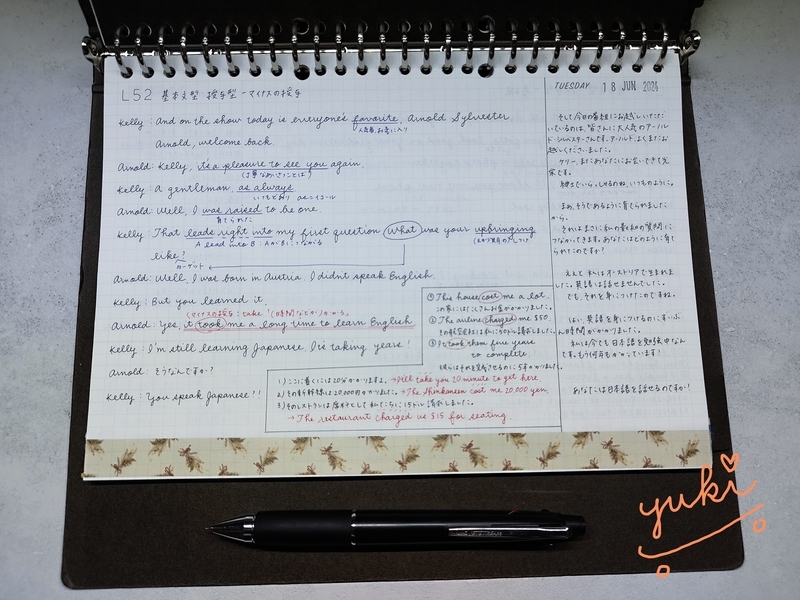 L52 基本文型 授与型 - マイナスの授与
TUESDAY 18 JUN 2024
Kelly: And on the show today is everyone's favorite, Arnold Sylvester
人気者、お気に入り
Arnold, welcome back.
Arnold: Kelly, it's a pleasure to see you again.
Kelly: A gentleman, as always
いつもどおり as=イコール
Arnold: Well, I was raised to be one.
育てられた
Kelly: That leads right into my first question. What was your upbringing
A lead into B: AがBにつながる
like?
ターゲット
Arnold: Well, I was born in Austria. I didn't speak English.
Kelly: But you learned it.
(マイナスの授与: take「(時間など)かかる」
Arnold: Yes, it took me a long time to learn English.
Kelly: I'm still learning Japanese. It's taking years!
Arnold: そうなんですか?
Kelly: You speak Japanese!!
① This house cost me a lot.
この家にはたくさんお金がかかりました。
② The airline charged me $50
その航空会社は私に50ドル請求しました。
③ It took them five years
to complete.
彼らはそれを完成させるのに5年かかりました。
1) ここに着くには20分かかりますよ。→ It'll take you 20 minute to get here.
2) その新幹線は20,000円かかりました。→ The Shinkansen cost me 20,000 yen.
3) そのレストランは席料として私たちに15ドル請求しました。
→ The restaurant charged us $15 for seating.
そして今日の番組にお越しいただ
いているのは、皆さんに大人気のアーノル
ド・シルベスターさんです。アーノルド、よくまたお
越しくださいました。
ケリー、またあなたにお会いできて光
栄です。
紳士でいらっしゃるのね、いつものように。
まぁ、そうであるように育てられました
から。
それはまさに私の最初の質問に
つながってきます。あなたはどのように育て
られたのですか?
ええと、私はオーストリアで生まれま
した。英語は話せませんでした。
でも、それを身につけたのですね。
はい、英語を身につけるのにずいぶ
ん時間がかかりました。
私は今でも日本語を勉強中なん
です。もう何年もかかっています!
あなたは日本語を話せるのですか!
yuki